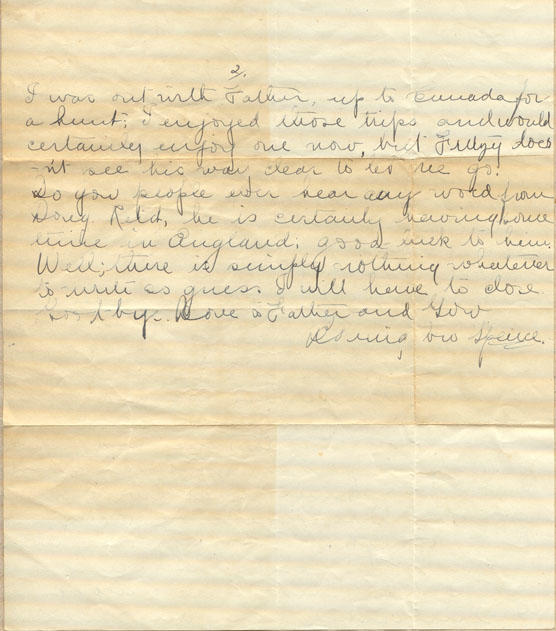 2.
I was out with Father, up to Canada for
a hunt; I enjoyed those trips and would
certainly enjoy one now, but does
-n't see his way clear to let me go.
Do you people ever hear any word from
Doug Reid, he is certainly having some
time in England; good luck to him.
Well; there is simply nothing whatever
to write so guess I will have to close
Good by. Love to Father and
Loving bro Spence.